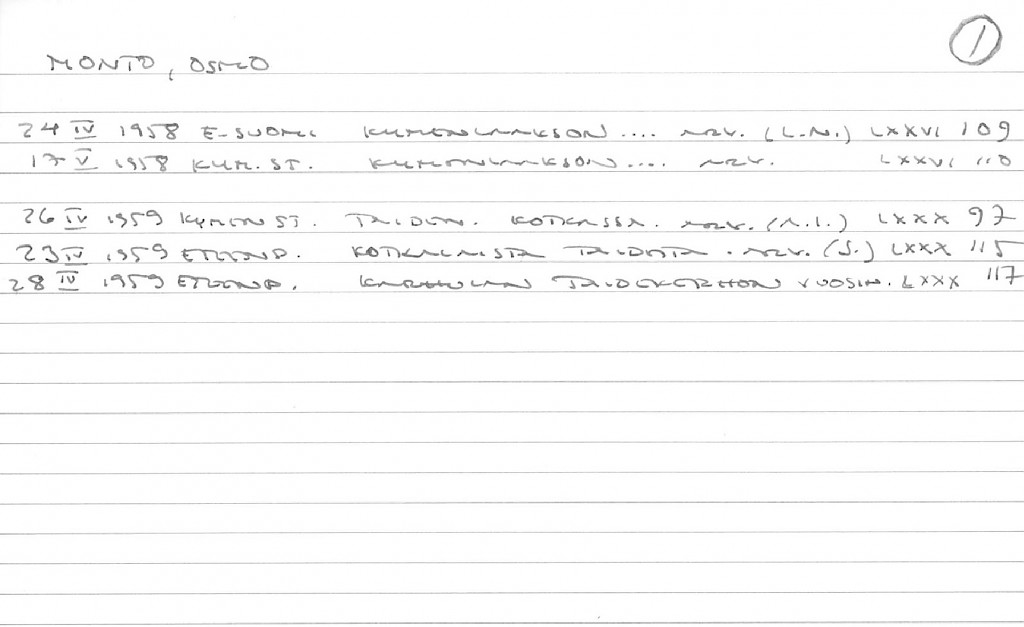 1
MONTO, OSMO
24 IV 1958 E-SUOMI KYMENLAAKSON .... ARV. (L.N.) LXXVI 109
17 V 1958 KYM.ST. KYMENLAAKSON .... ARV. LXXVI 110
26 IV 1959 KYMEN ST. TAIDEN. KOTKASSA. ARV. (A.I.) LXXX 97
23 IV 1959 ETEENP. KOTKALAISTA TAIDETTA. ARV. (S.) LXXX 115
28 IV 1959 ETEENP. KARHULAN TAIDEKERHON VUOSIN. LXXX 117